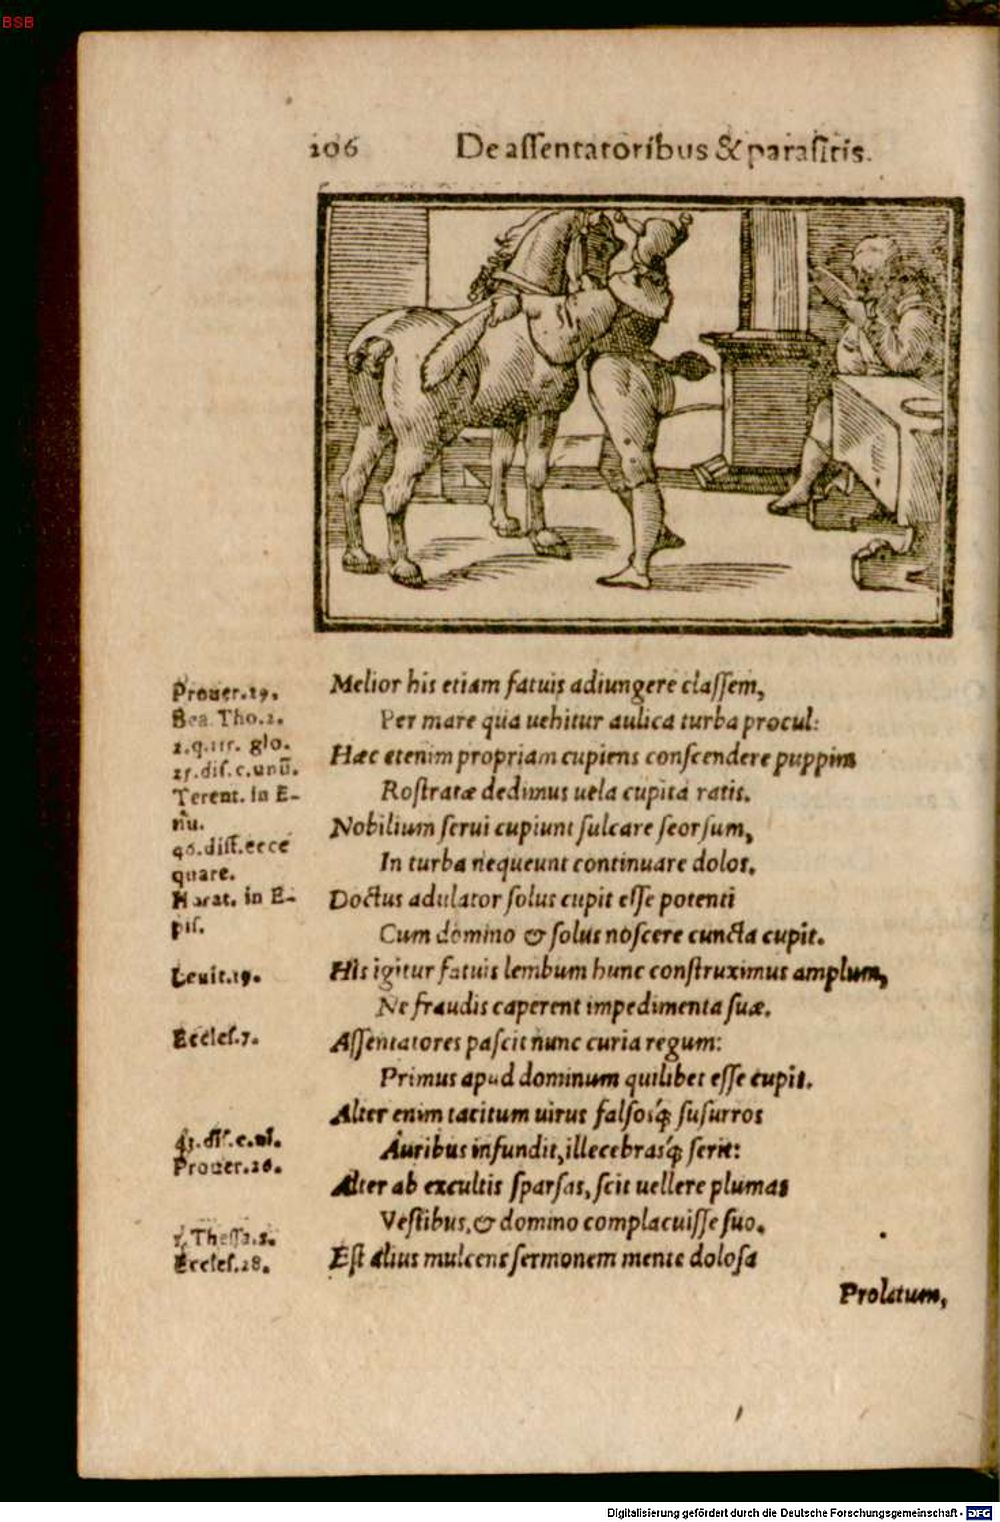 BSB
206 De aſſentatoribus & paraſitis.
Melior his etiam fatuis adiungere claſſem,
Per mare qua uehitur aulica turba procul:
Hæc etenim propriam cupiens conſcendere puppim
Roſtratæ dedimus uela cupita ratis.
Nobilium ſerui cupiunt ſulcare ſeorſum,
In turba nequeunt continuare dolos.
Doctus adulator ſolus cupit eſſe potenti
Cum domino & ſolus noſcere cuncta cupit.
His igitur fatuis lembum hunc conſtruximus amplum,
Ne fraudis caperent impedimenta ſuæ.
Aſſentatores paſcit nunc curia regum:
Primus apud dominum quilibet eſſe cupit.
Alter enim tacitum uirus falſosq́ ſuſurros
Auribus infundit, illecebrasq́ ſerit:
Alter ab excultis ſparſas, ſcit uellere plumas
Veſtibus, & domino complacuiſſe ſuo.
Eſt alius mulcens ſermonem mente doloſa
Prolatum,
Prouer.29.
Bea Tho.2.
2.q.111. glo.
25.diſ.c.unū.
Terent. in E-
nu.
46.diſt.ecce
quare.
Horat. in E-
piſ.
Leuit.19.
Eccleſ.7.
43.diſ.c.ul.
Prouer.26.
1.Theſſa.2.
Eccleſ.28.
Digitalisierung gefördert durch die Deutsche Forschungsgemeinschaft - DFG